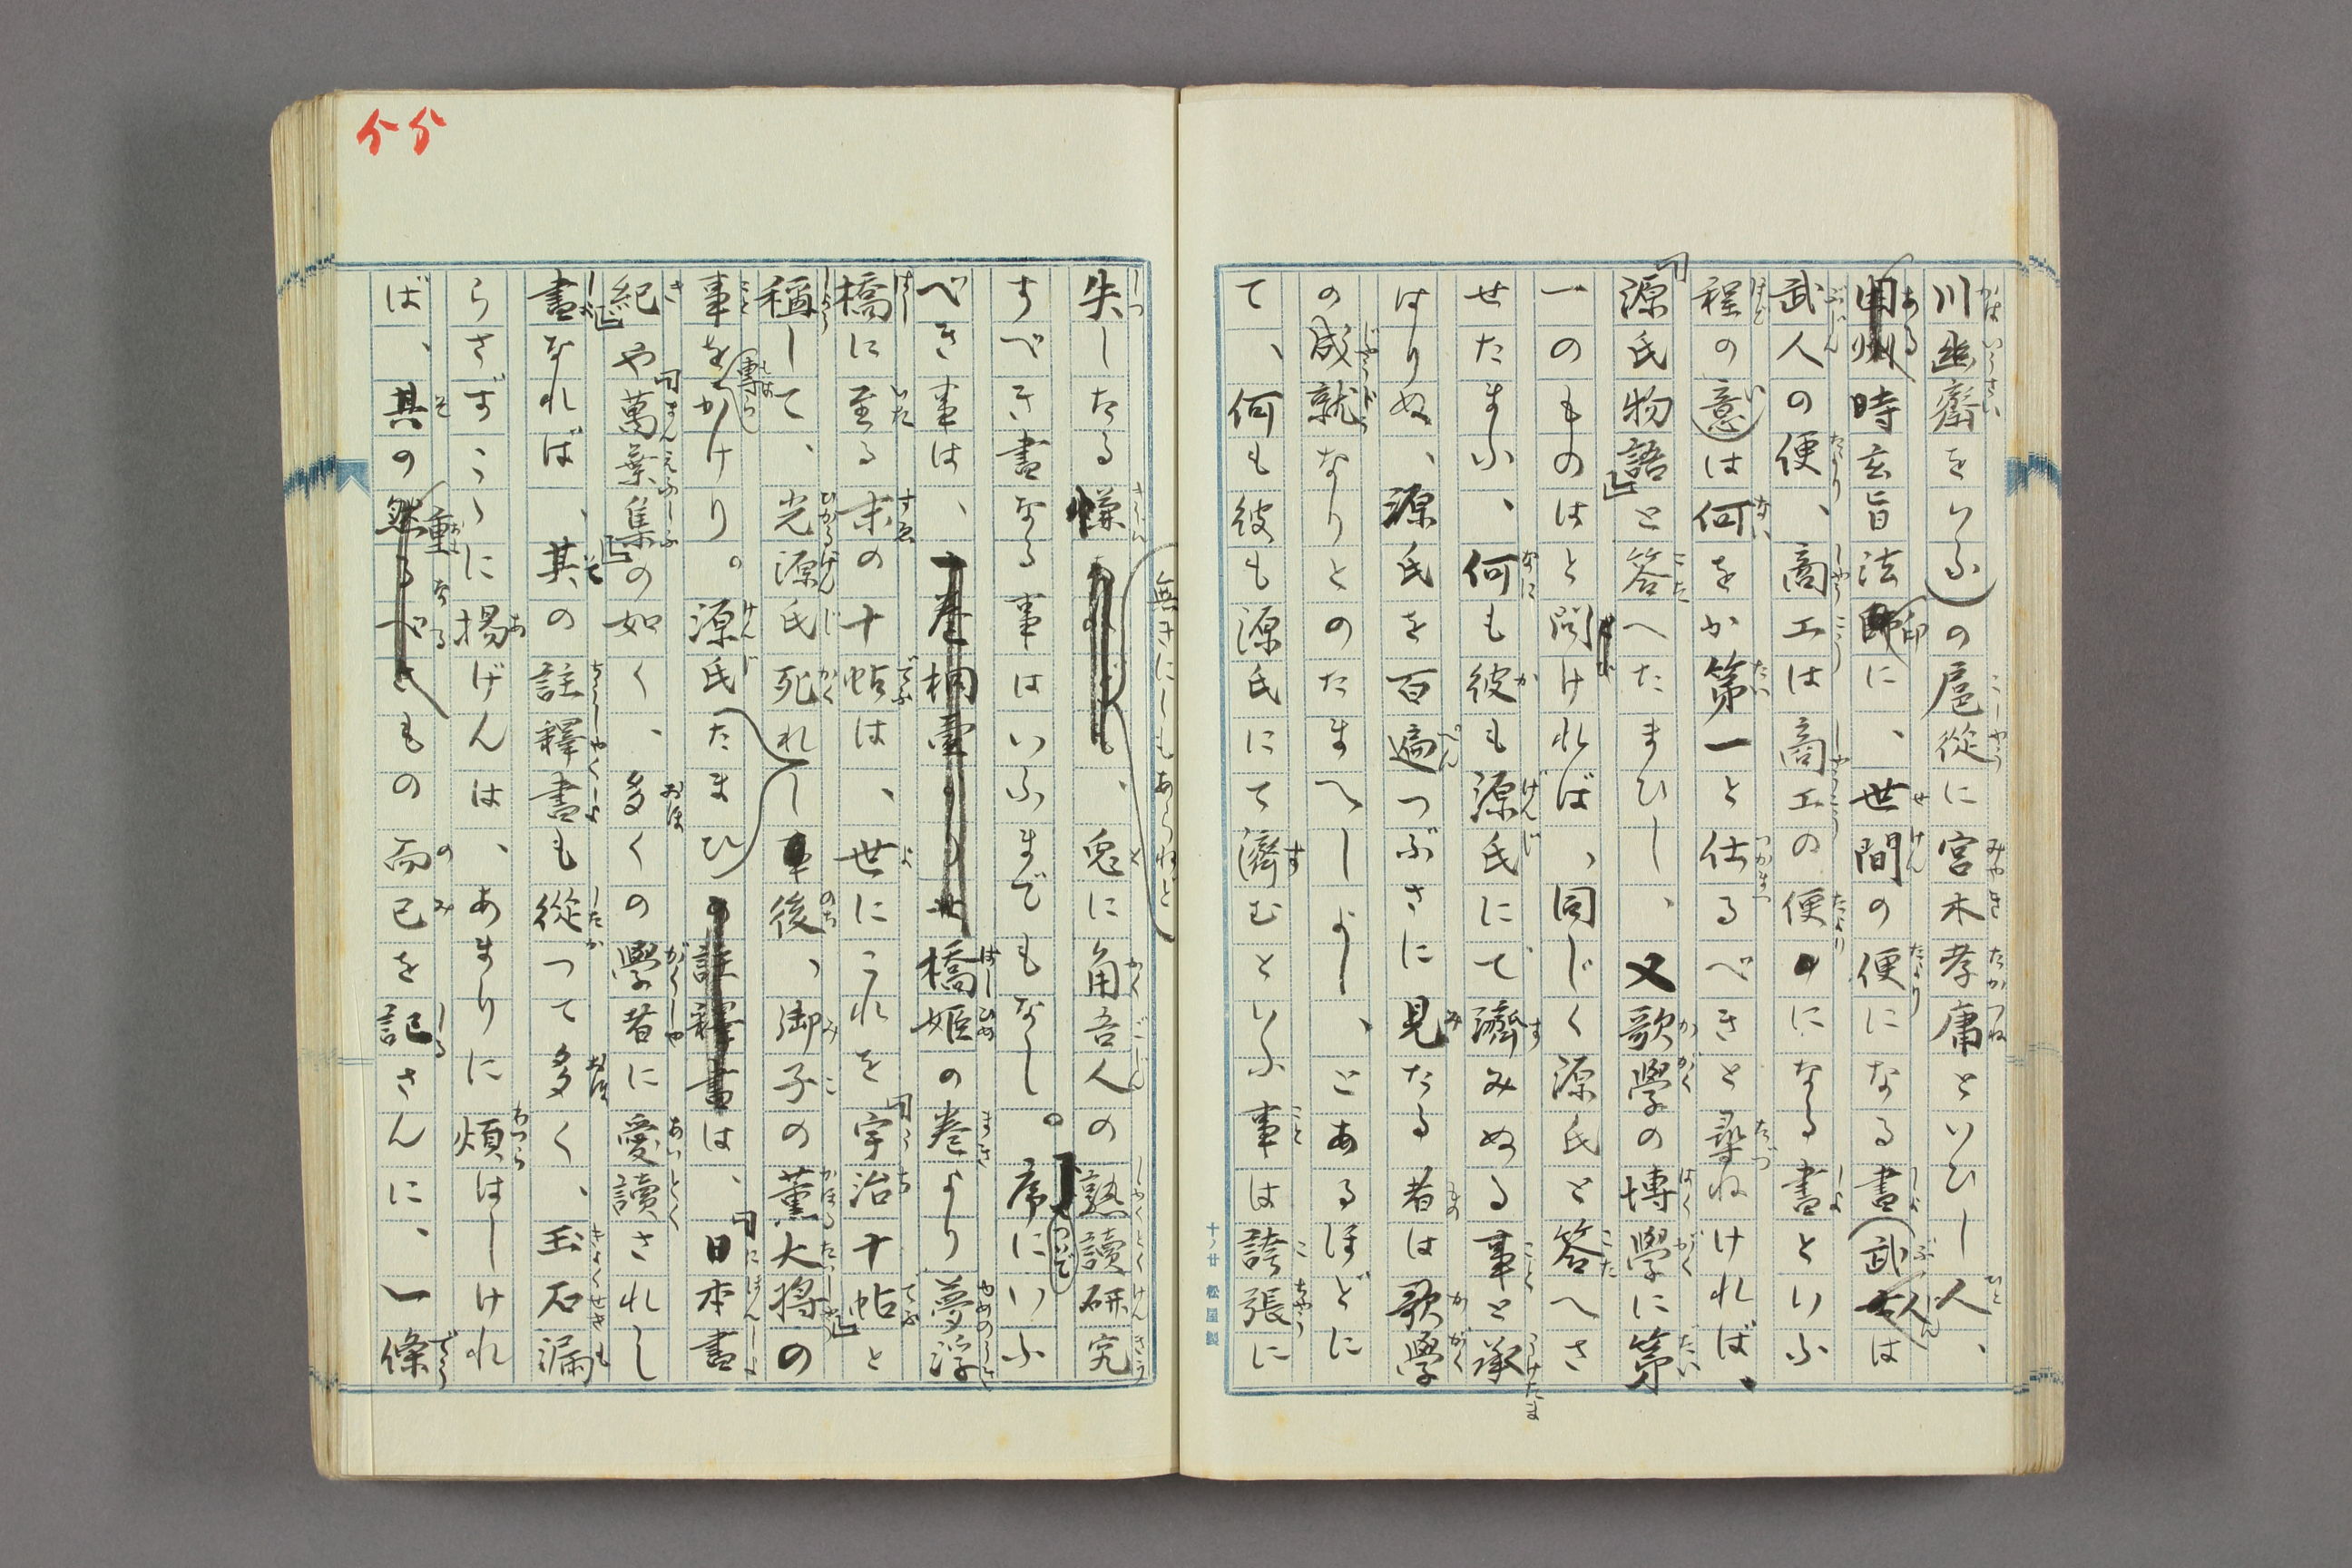 川幽齋をいふ)の扈從に宮木孝庸といひし人、
時玄旨法印に、世間の便になる書(武人は
武人の便、商工は商工の便になる書といふ
程の意)は何をか第一と仕るべきと尋ねければ、
『源氏物語』と答へたまひし、又歌學の博學に第
一のものはと問ければ、同じく源氏と答へさ
せたまふ、何も彼も源氏にて濟みぬる事と承
はりぬ、源氏を百遍つぶさに見たる者は歌學
の成就なりとのたまへしよし、とあるほどに
て、何も彼も源氏にて濟むといふ事は誇張に
十ノ廿 松屋製
失したる嫌無きにしもあらねど、兎に角吾人の熟讀研究
すべき書なる事はいふまでもなし。序にいふ
べき事は、橋姫の巻より夢浮
橋に至る末の十帖は、世にこれを『宇治十帖』と
稱して、光源氏死れし後、御子の薫大將の
事を專らかけり。源氏は、『日本書
紀』や『萬葉集』の如く、多くの學者に愛讀されし
書なれば、其の註釋書も從つて多く、玉石漏
らさずこゝに揚げんは、あまりに煩はしけれ
ば、其の重なるもの而已を記さんに、一條